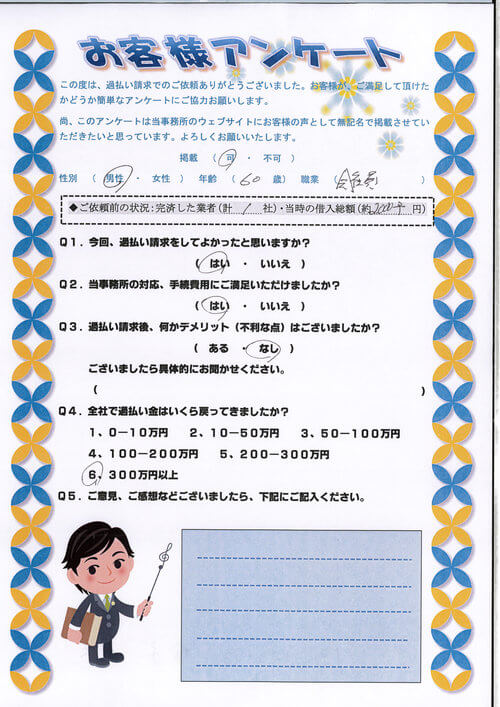 お客様アンケート
この度は、過払い請求でのご依頼ありがとうございました。お客様が、ご満足して頂けた
かどうか簡単なアンケートにご協力お願いします。
尚、このアンケートは当事務所のウェブサイトにお客様の声として無記名で掲載させてい
ただきたいと思っています。よろしくお願いいたします。
掲載 ( 可 ・ 不可 )
性別 ( 男性 ・ 女性 ) 年齢 ( 60 歳) 職業 (会社員 )
◆ご依頼前の状況:完済した業者(計 1 社)・当時の借入総額(約 円)
Q1.今回、過払い請求をしてよかったと思いますか?
( はい ・ いいえ )
Q2.当事務所の対応、手続費用にご満足いただけましたか?
( はい ・ いいえ )
Q3.過払い請求後、何かデメリット(不利な点)はございましたか?
( ある ・ なし )
ございましたら具体的にお聞かせください。
( )
Q4.全社で過払い金はいくら戻ってきましたか?
1、0-10万円 2、10-50万円 3、50-100万円
4、100-200万円 5、200-300万円
6、300万円以上
Q5.ご意見、ご感想などございましたら、下記にご記入ください。